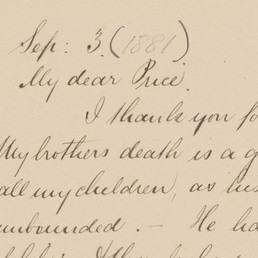 Sep: 3. (1881)
My dear Price.
I thank you fo
My brothers death is a g
all my children, as his
unbounded. — He ha